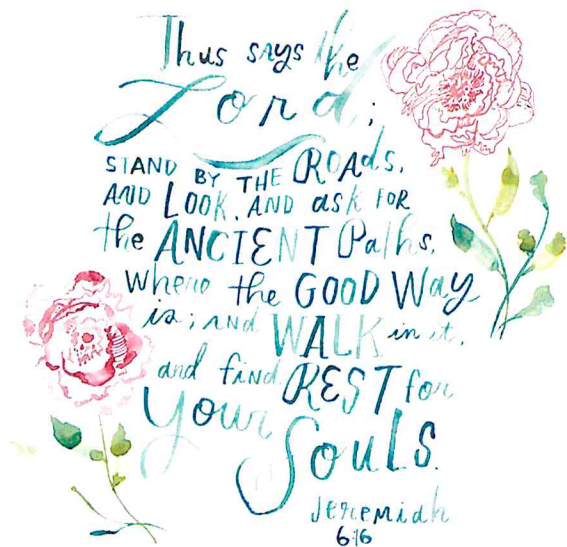 Thus says the
Lord;
STAND BY THE ROADS,
AND LOOK, AND ask FOR
the ANCIENT Paths,
where the GOOD Way
is; and WALK in it,
and find REST for
your
Souls.
Jeremiah
6:16